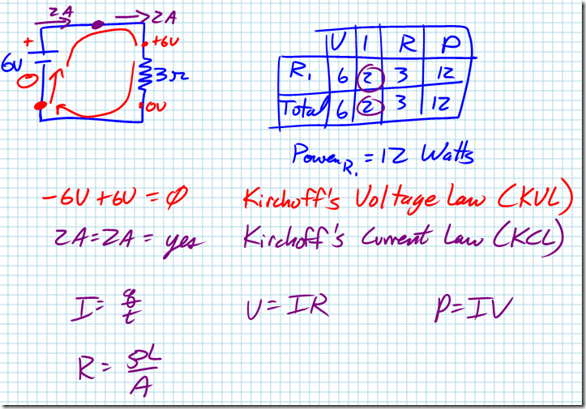 2A 2A
+ +6V
6V 3Ω
0V
V I R P
R₁ 6 2 3 12
Total 6 2 3 12
Power R₁ = 12 Watts
-6V +6V = 0 Kirchoff's Voltage Law (KVL)
2A = 2A = yes Kirchoff's Current Law (KCL)
I = q/t V = IR P = IV
R = ρL/A